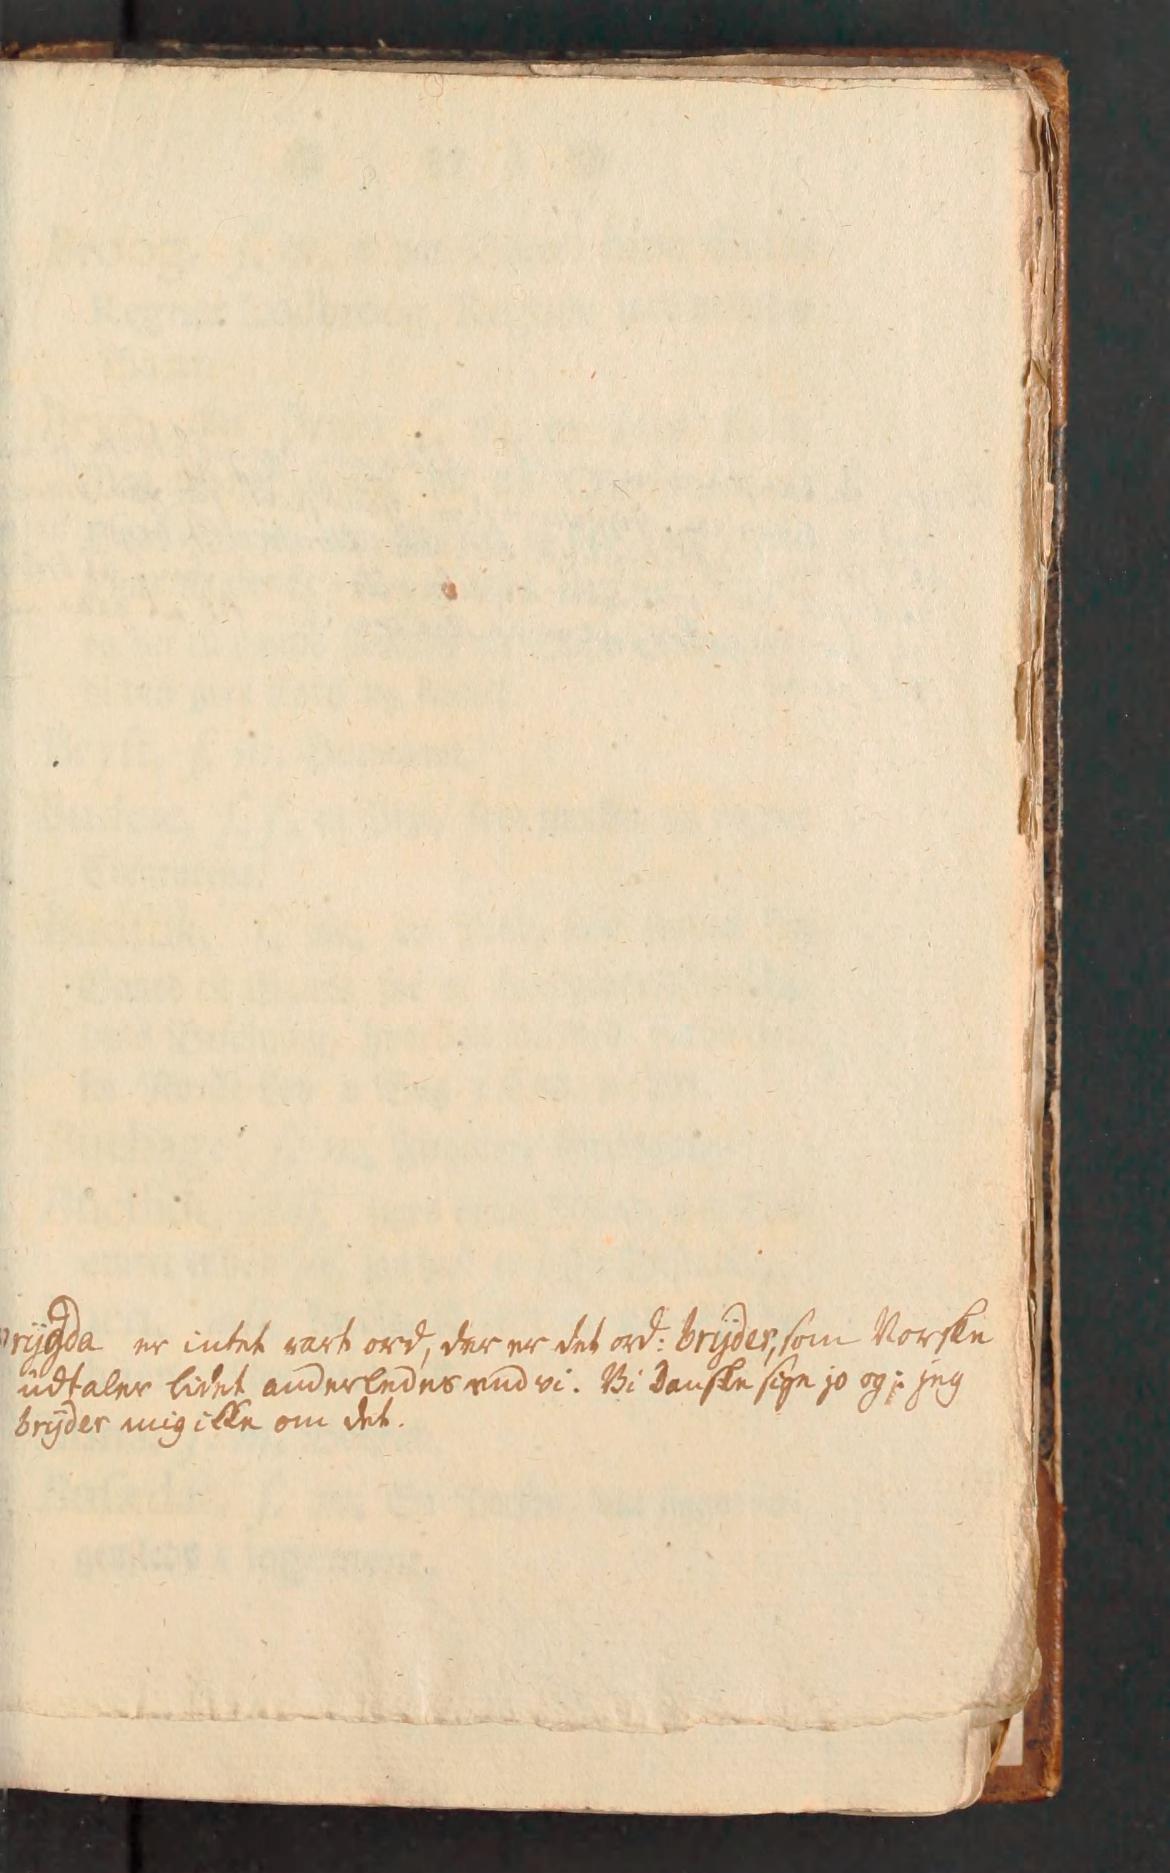 brÿgda er intet rart ord, der er det ord: brÿder, som Norske
üdtaler lidet anderledes end vi. Vi Danske sige jo og: jeg
brÿder mig ikke om det.